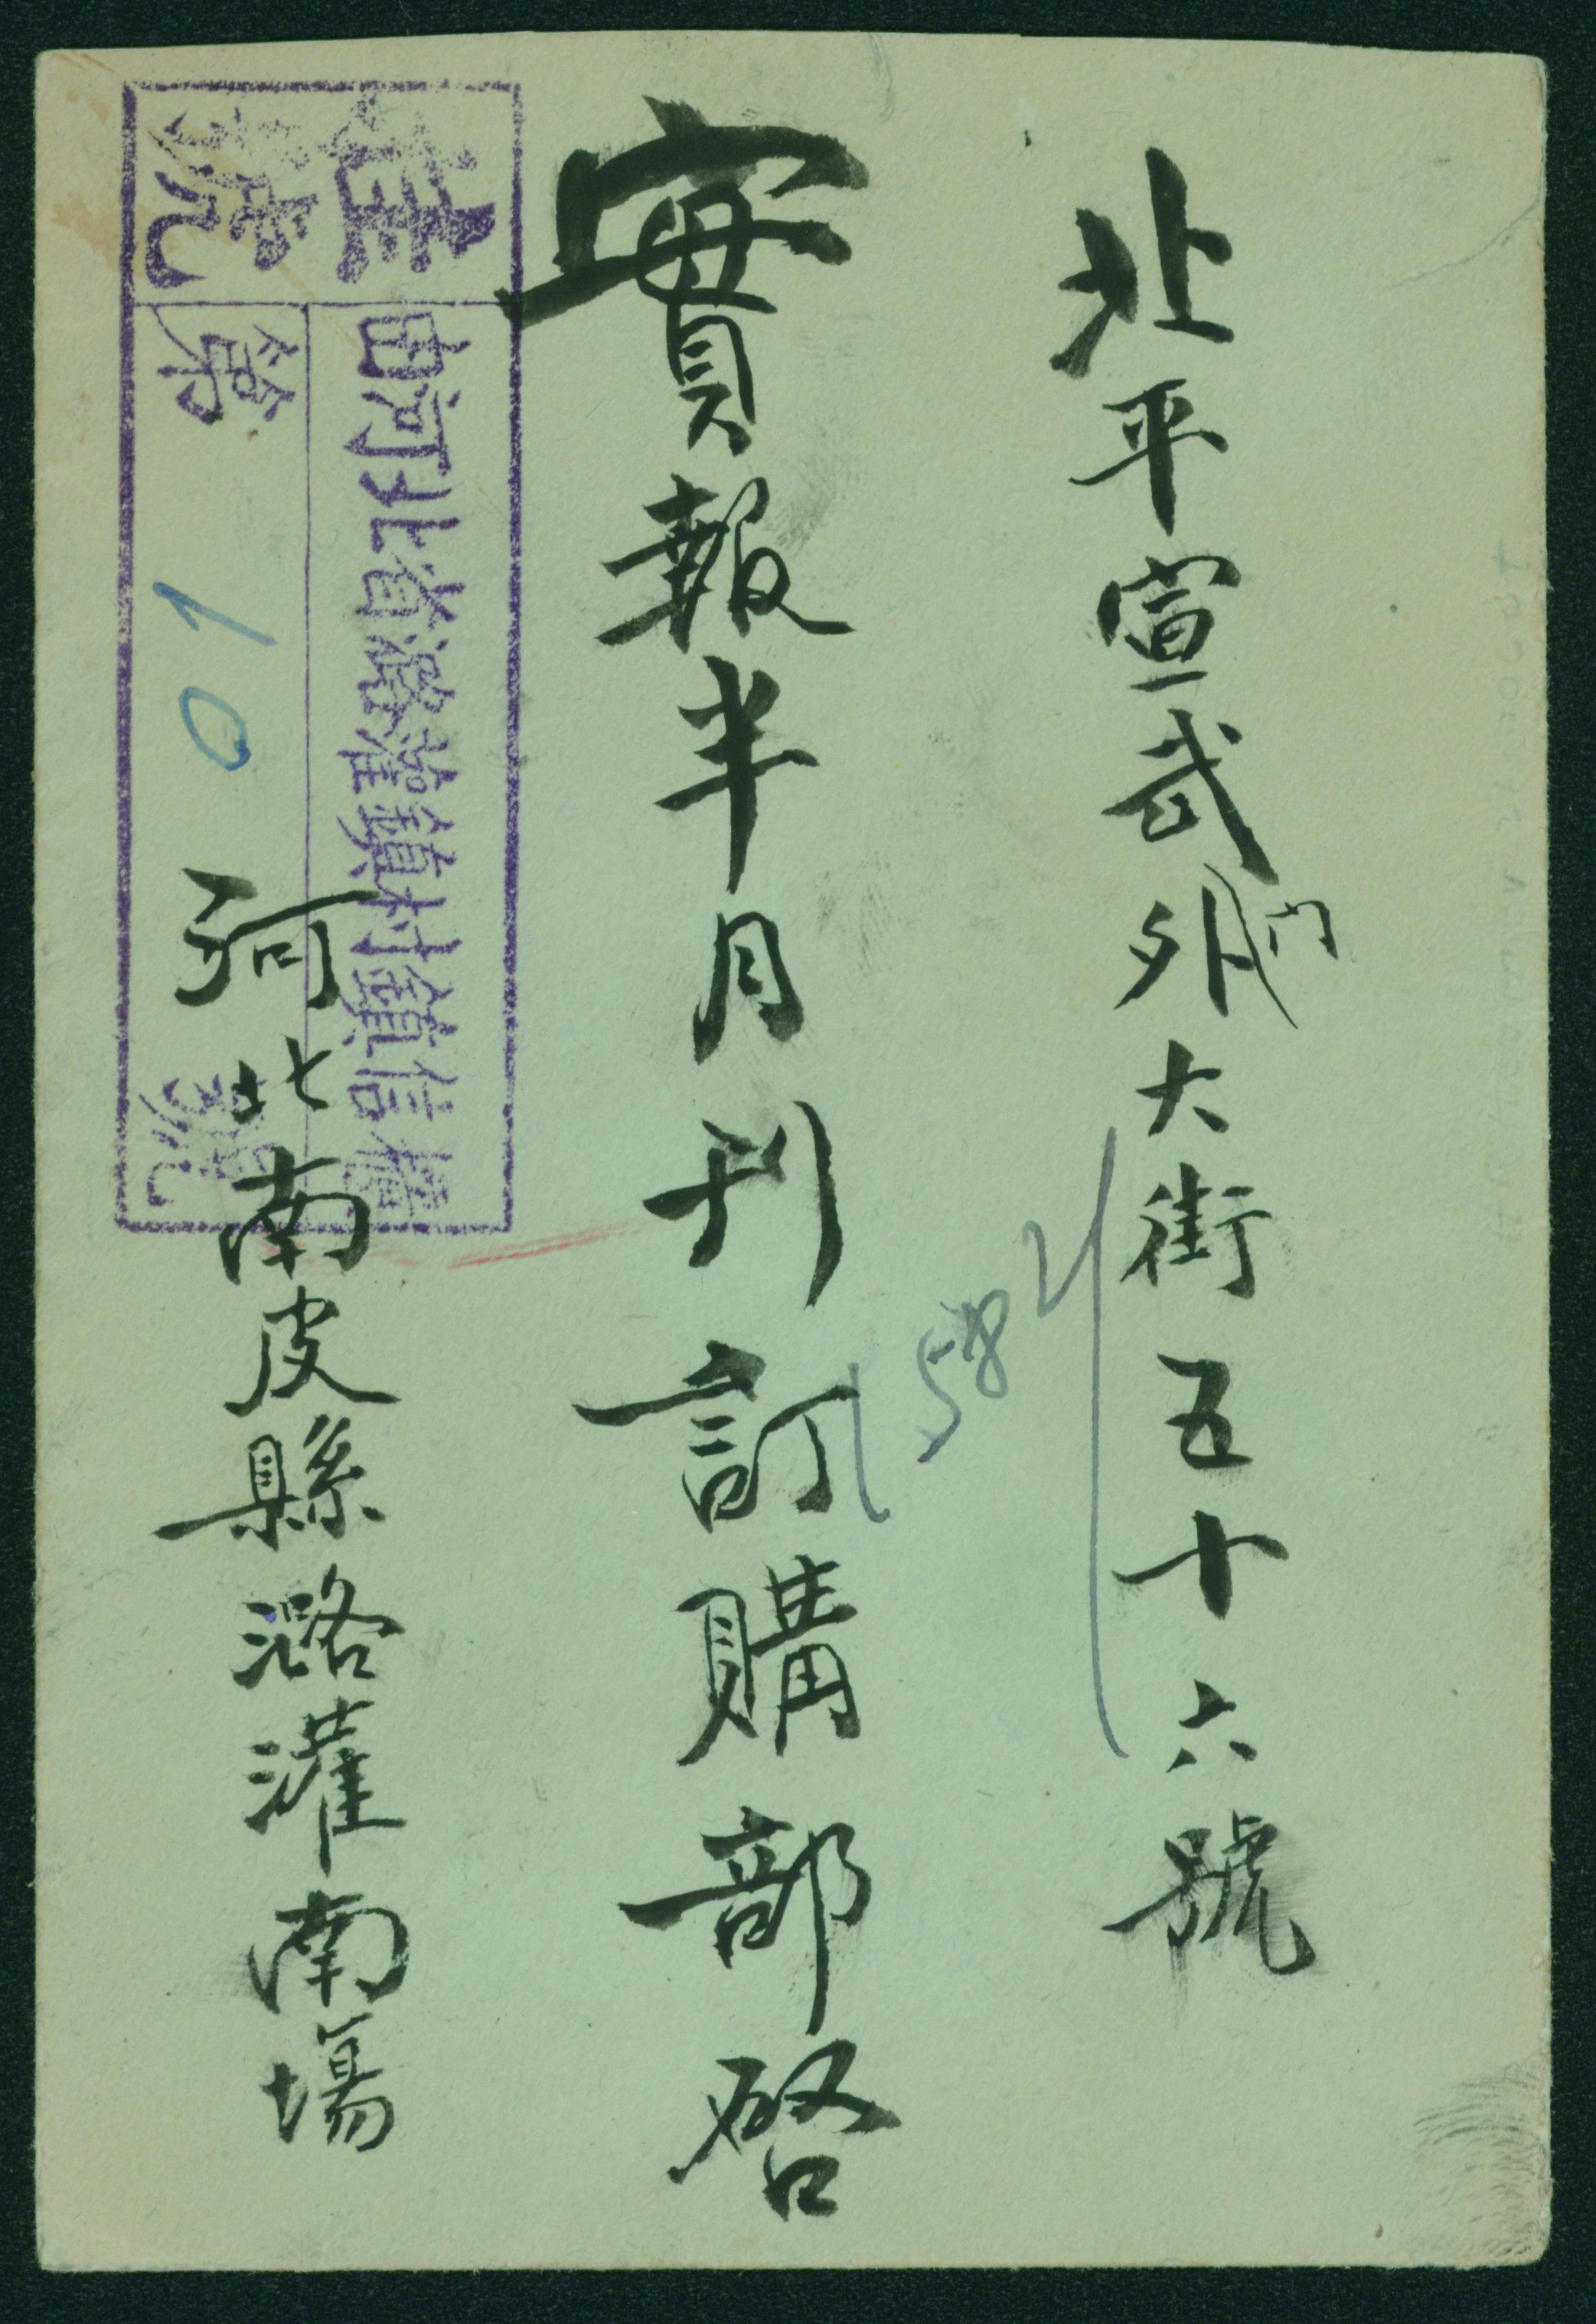 北平宣武門外大街五十六號
實報半月刊訂購部啓
河北南皮縣潞灌南場
掛號
由河北省潞灌鎮村鎮信櫃
第 10 號
1582